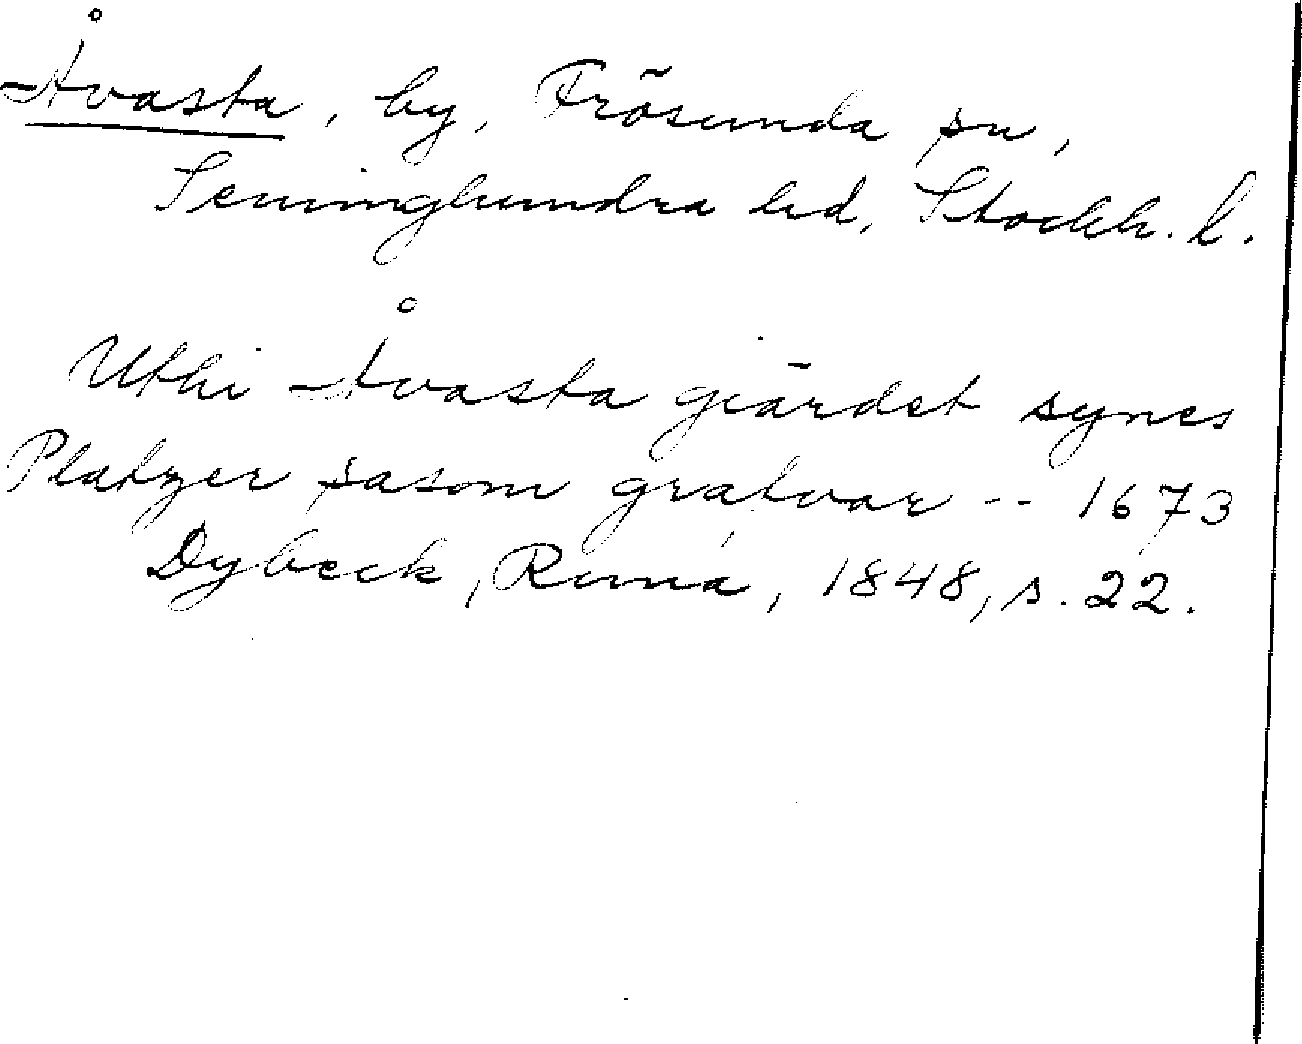 Åvasta, by, Frösunda sn,
Seminghundra hd, Stockh. l.
Uthi Åvasta giärdet synes
Platzer såsom grafvar -- 1673
Dybeck, Runa, 1848, s. 22.